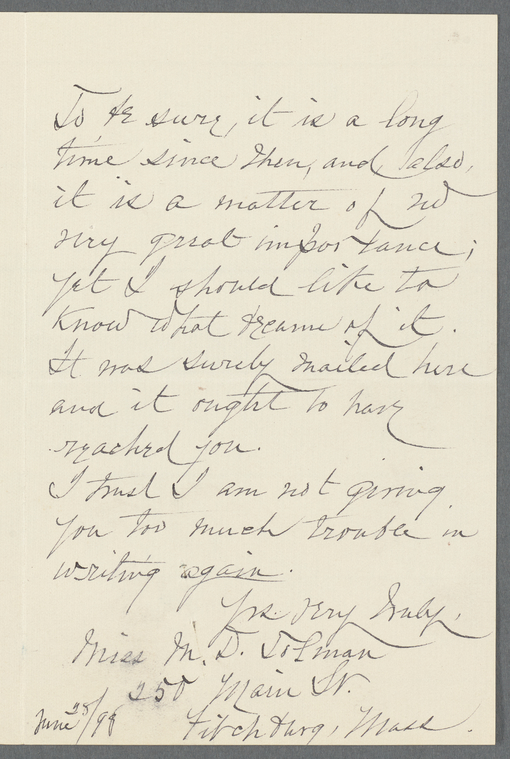 To be sure, it is a long
time since then, and also,
it is a matter of no
very great importance;
yet I should like to
know what became of it.
It was surely mailed here
and it ought to have
reached you.
I trust I am not giving
you too much trouble in
writing again.
Yrs. very truly,
Miss M. D. Tolman
250 Main St.
June 28/99 Fitchburg, Mass.